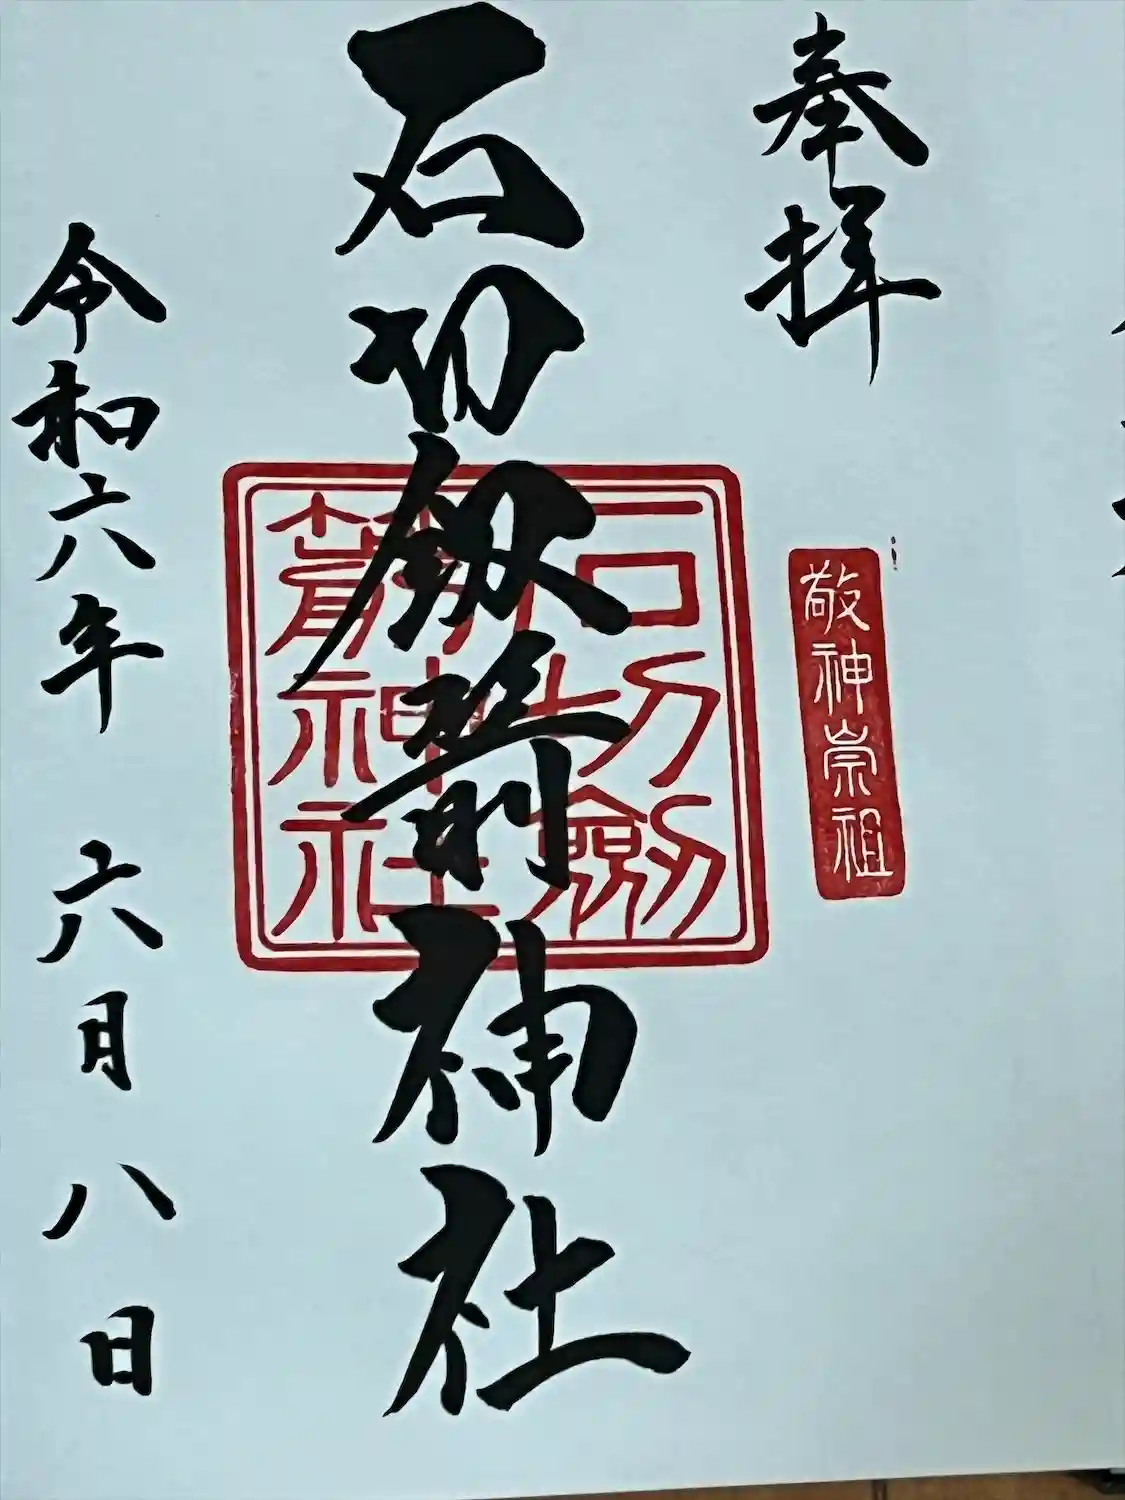 奉拝
敬神崇祖
石切劔箭神社
石切劔
箭神社
令和六年 六月八日